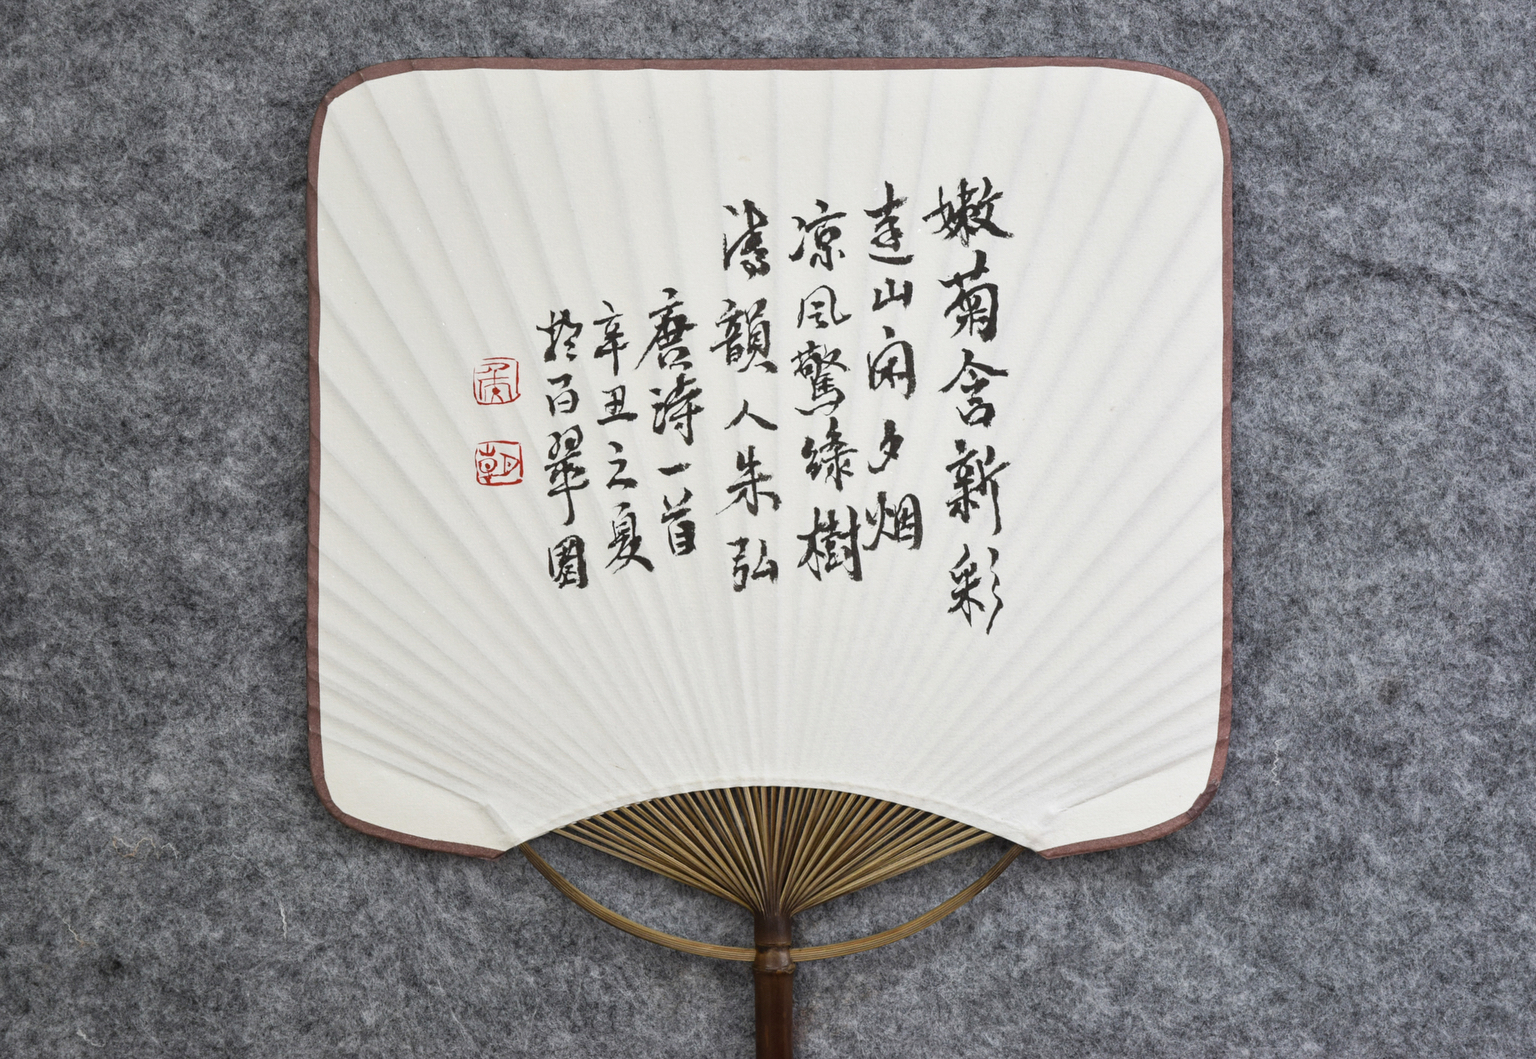 嫩菊含新彩
遠山闲夕烟
凉风驚綠樹
清韻入朱弦
唐詩一首
辛丑之夏
於百翠園
朝